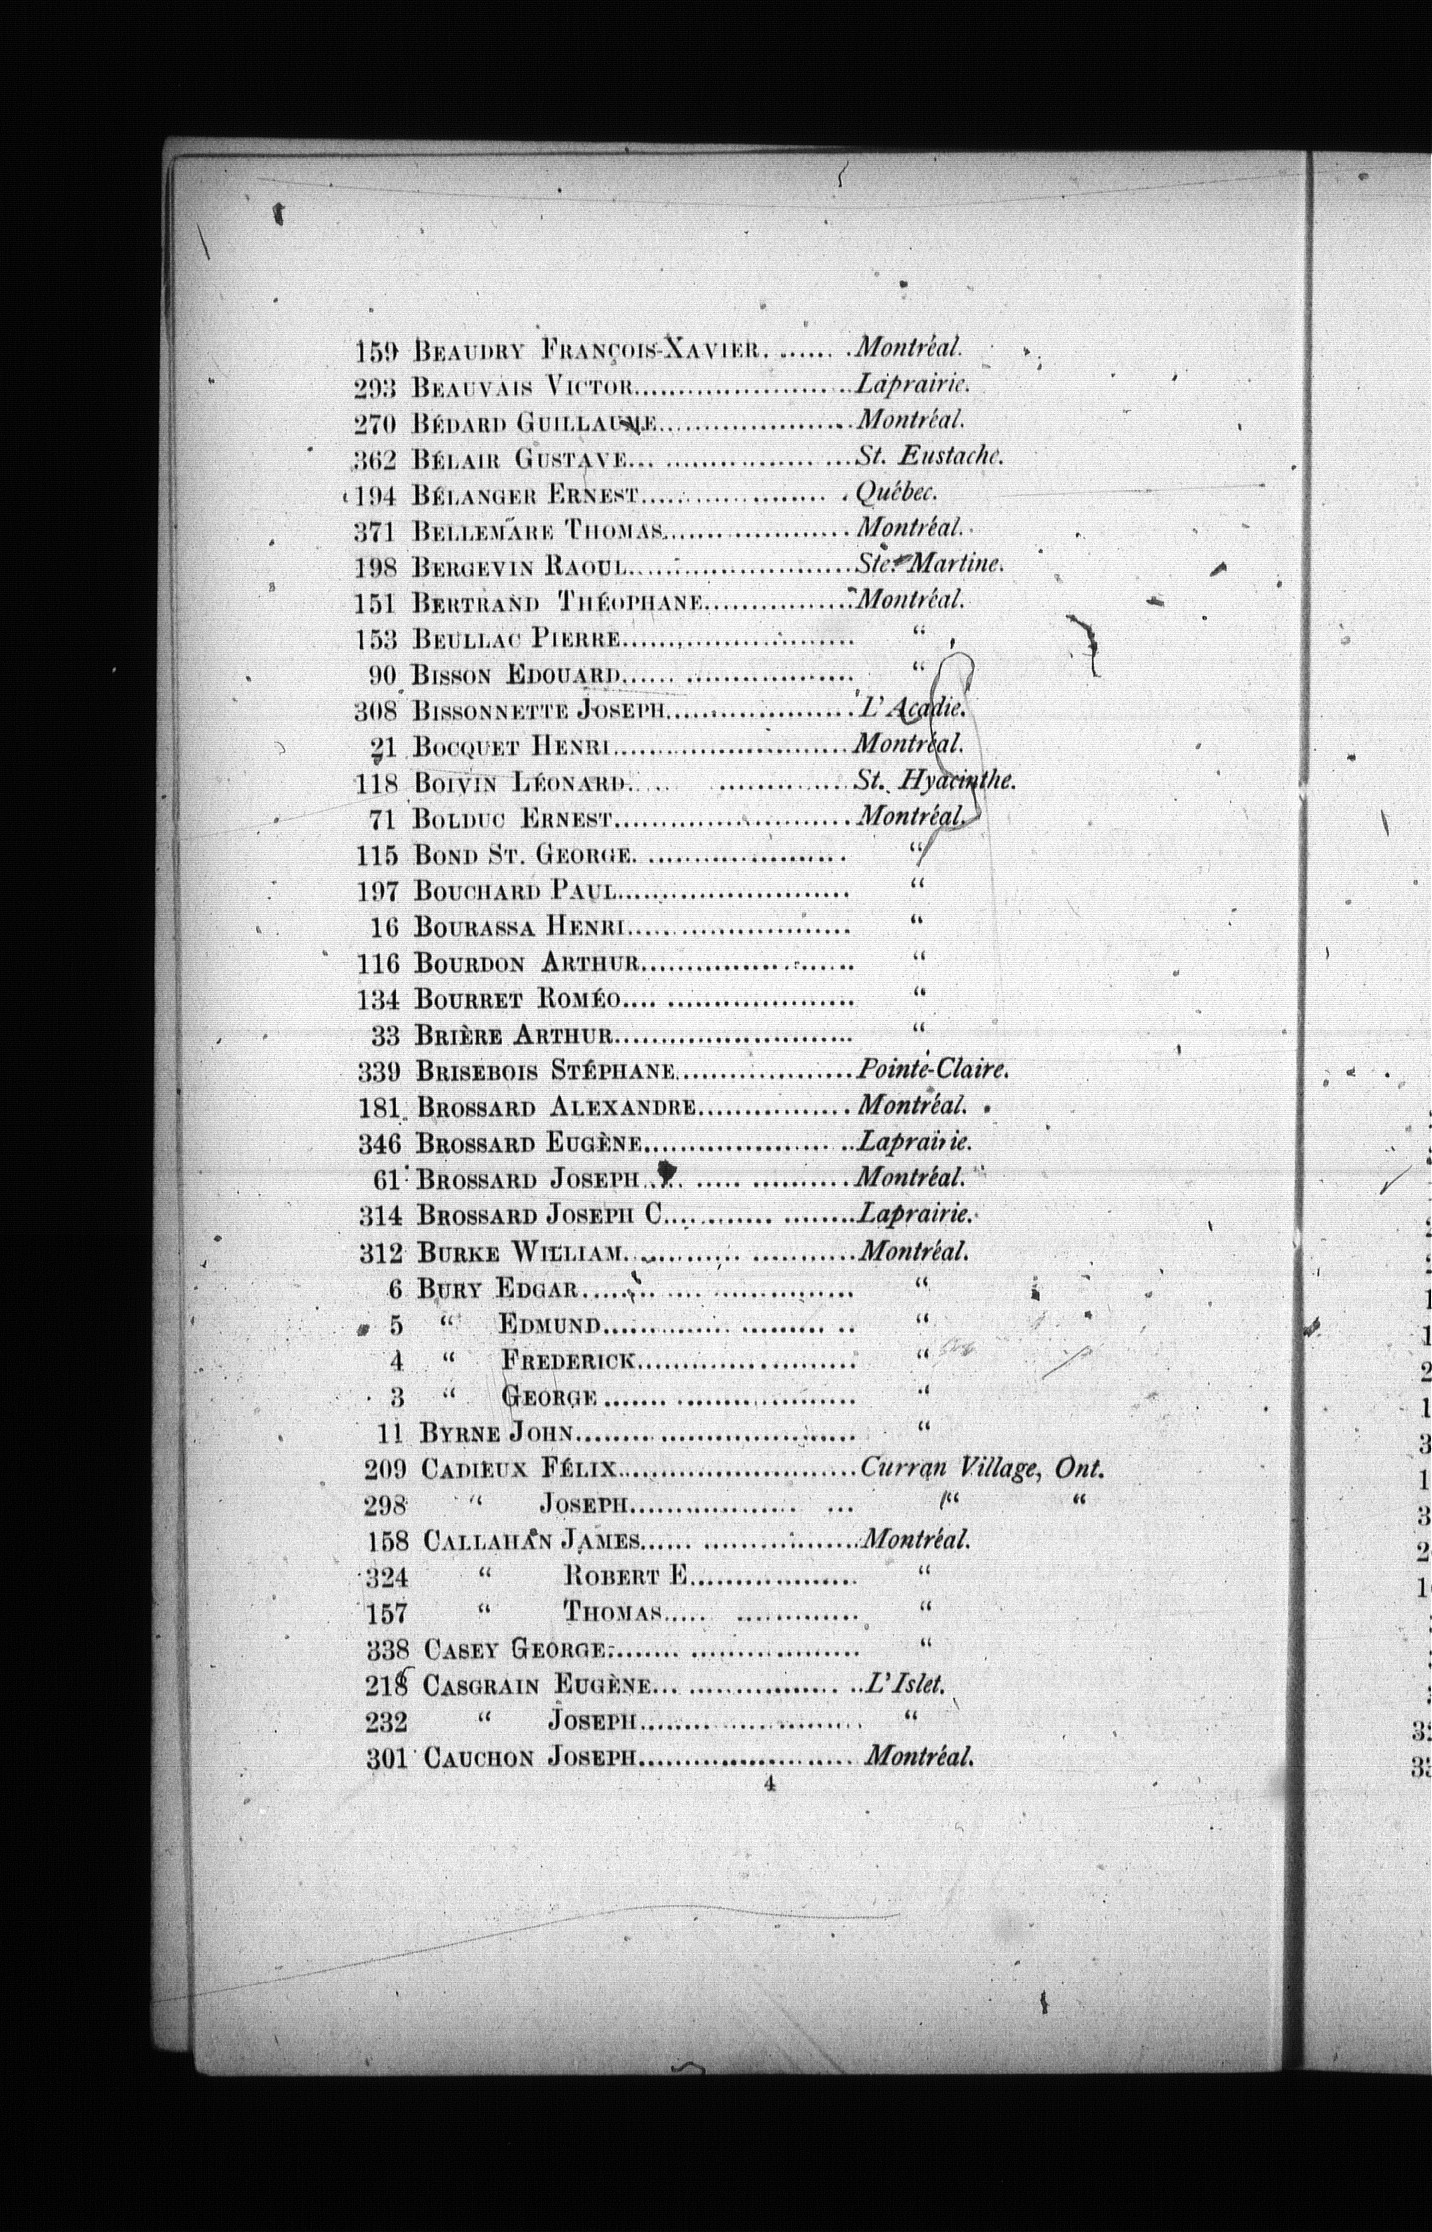 159 BEAUDRY FRANÇOIS-XAVIER........Montréal.
293 BEAUVAIS VICTOR........................Laprairie.
270 BÉDARD GUILLAUME.....................Montréal.
362 BÉLAIR GUSTAVE........................St. Eustache.
194 BÉLANGER ERNEST.....................Québec.
371 BELLEMARE THOMAS....................Montréal.
198 BERGEVIN RAOUL........................Ste. Martine.
151 BERTRAND THÉOPHANE................Montréal.
153 BEULLAC PIERRE......................... “
90 BISSON EDOUARD......................... “
308 BISSONNETTE JOSEPH....................L'Acadie.
21 BOCQUET HENRI.........................Montréal.
118 BOIVIN LÉONARD...................St. Hyacinthe.
71 BOLDUC ERNEST.........................Montréal.
115 BOND ST. GEORGE....................... “
197 BOUCHARD PAUL......................... “
16 BOURASSA HENRI........................ “
116 BOURDON ARTHUR....................... “
134 BOURRET ROMÉO........................ “
33 BRIÈRE ARTHUR.......................... “
339 BRISEBOIS STÉPHANE...................Pointe-Claire.
181 BROSSARD ALEXANDRE................Montréal.
346 BROSSARD EUGÈNE......................Laprairie.
61 BROSSARD JOSEPH....................Montréal.
314 BROSSARD JOSEPH C....................Laprairie.
312 BURKE WILLIAM........................Montréal.
6 BURY EDGAR............................ “
5 “ EDMUND......................... “
4 “ FREDERICK....................... “
3 “ GEORGE......................... “
11 BYRNE JOHN............................. “
209 CADIEUX FÉLIX.........................Curran Village, Ont.
298 “ JOSEPH...................... “ “
158 CALLAHAN JAMES.......................Montréal.
324 “ ROBERT E.................. “
157 “ THOMAS.................. “
338 CASEY GEORGE......................... “
218 CASGRAIN EUGÈNE.....................L'Islet.
232 “ JOSEPH...................... “
301 CAUCHON JOSEPH.......................Montréal.
4